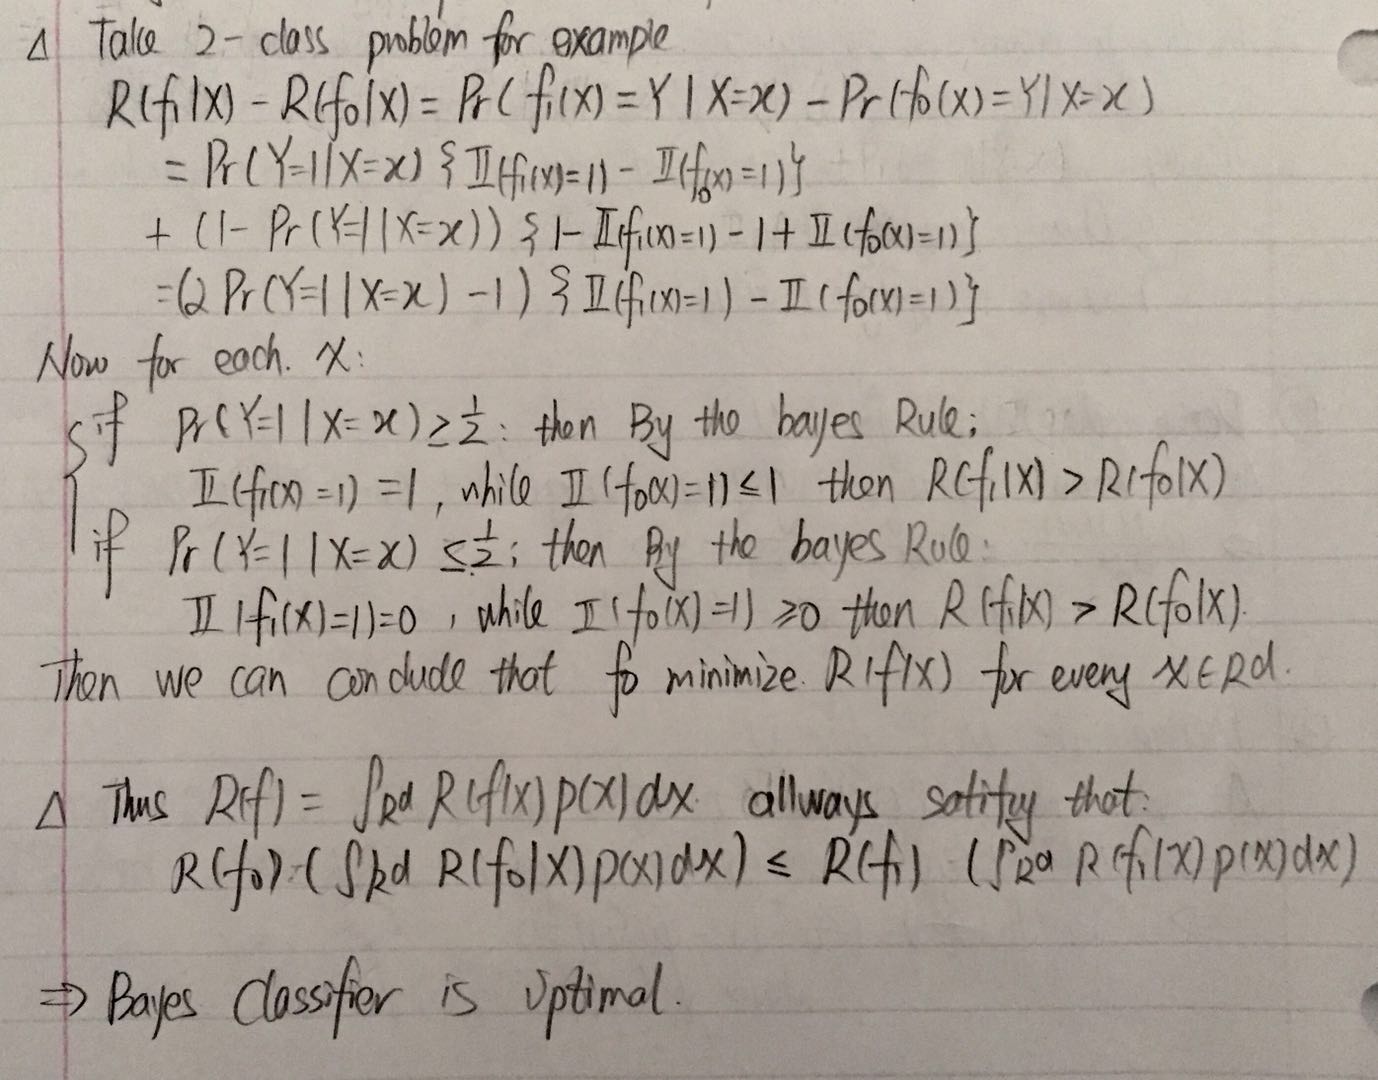 Δ Take 2-class problem for example
R(f₁|X) - R(f₀|X) = Pr(f₁(X)=Y | X=x) - Pr(f₀(X)=Y | X=x)
= Pr(Y=1|X=x) {𝕀(f₁(X)=1) - 𝕀(f₀(X)=1)}
+ (1- Pr(Y=1|X=x)) {1-𝕀(f₁(X)=1) - 1 + 𝕀(f₀(X)=1)}
=(2 Pr(Y=1|X=x) -1) {𝕀(f₁(X)=1) - 𝕀(f₀(X)=1)}
Now for each. x:
{ if Pr(Y=1|X=x) ≥ ½: then By the bayes Rule;
𝕀(f₁(X)=1)=1, while 𝕀(f₀(X)=1) ≤ 1 then R(f₁|X) > R(f₀|X)
if Pr(Y=1|X=x) ≤ ½; then By the bayes Rule:
𝕀(f₁(X)=1)=0, while 𝕀(f₀(X)=1) ≥0 then R(f₁|X) > R(f₀|X).
Then we can conclude that f₀ minimize. R(f|X) for every x∈Rd.
Δ Thus R(f) = ∫Rd R(f|X)p(X)dx. allways satify that:
R(f₀) (∫Rd R(f₀|X)p(X)dx) ≤ R(f₁) (∫Rd R(f₁|X)p(X)dx)
⇒ Bayes Classifier is optimal.